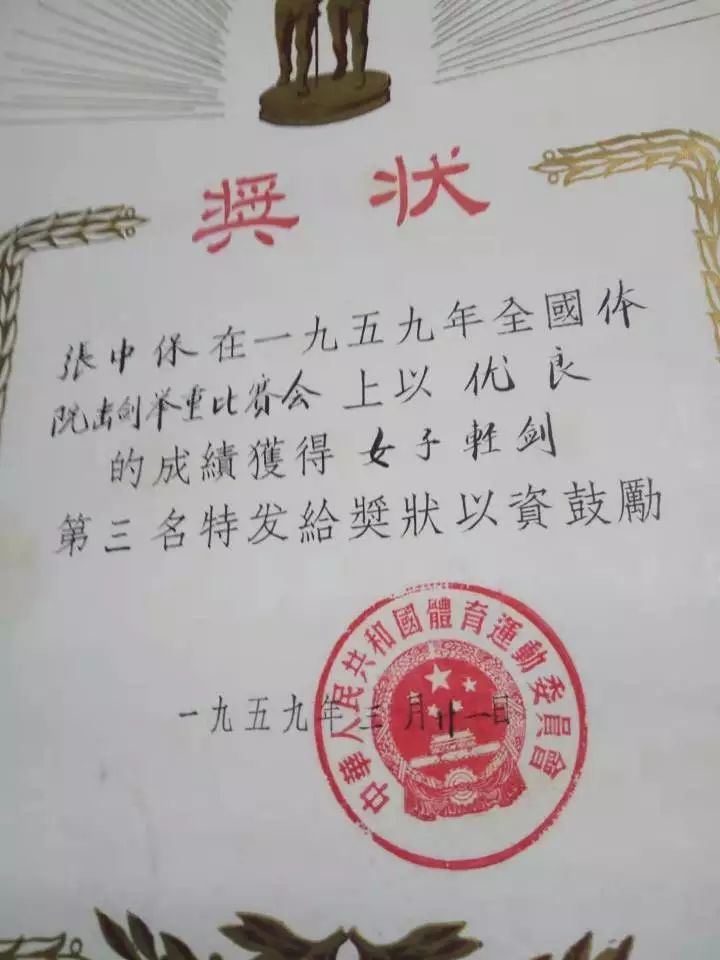 奬状
張中保在一九五九年全國体
院击剑举重比賽会上以优良
的成績獲得女子軽剑
第三名特发給獎狀以資鼓勵
一九五九年三月廿一日
中華人民共和國體育運動委員會